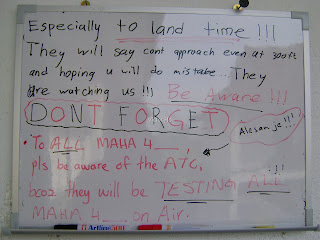 Especially to land time !!!
They will say cont approach even at 300ft
and hoping u will do mistake... They
are watching us !!! Be Aware !!!
DONT FORGET
Alasan je!!!
• To ALL MAHA 4__,
pls be aware of the ATC,
bcoz they will be TESTING ALL
MAHA 4__ on Air.
Artline